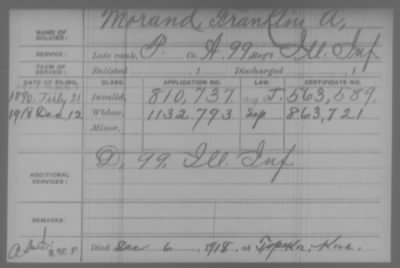 NAME OF SOLDIER: Morand, Franklin A,
SERVICE: Late rank, P. Co. A, 99 Reg't Ill. Inf
TERM OF SERVICE: Enlisted 1 Discharged , 1
DATE OF FILING. CLASS. APPLICATION NO. LAW. CERTIFICATE NO.
1890 July 21 Invalid, 810,737. J. 563,589.
1918 Dec 12 Widow, 1132793 Sep 863,721
Minor,
ADDITIONAL SERVICES: D, 99, Ill. Inf.
REMARKS:
Died Dec 6, 1918, at Topeka, Kas.